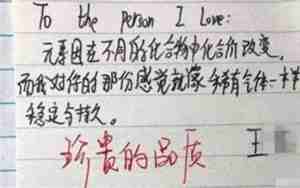 To the Person I Love:
元素因在不同的化合物中化合价改变,
而我对你的那份感觉就像稀有气体一样
稳定与持久。
珍贵的品质 王